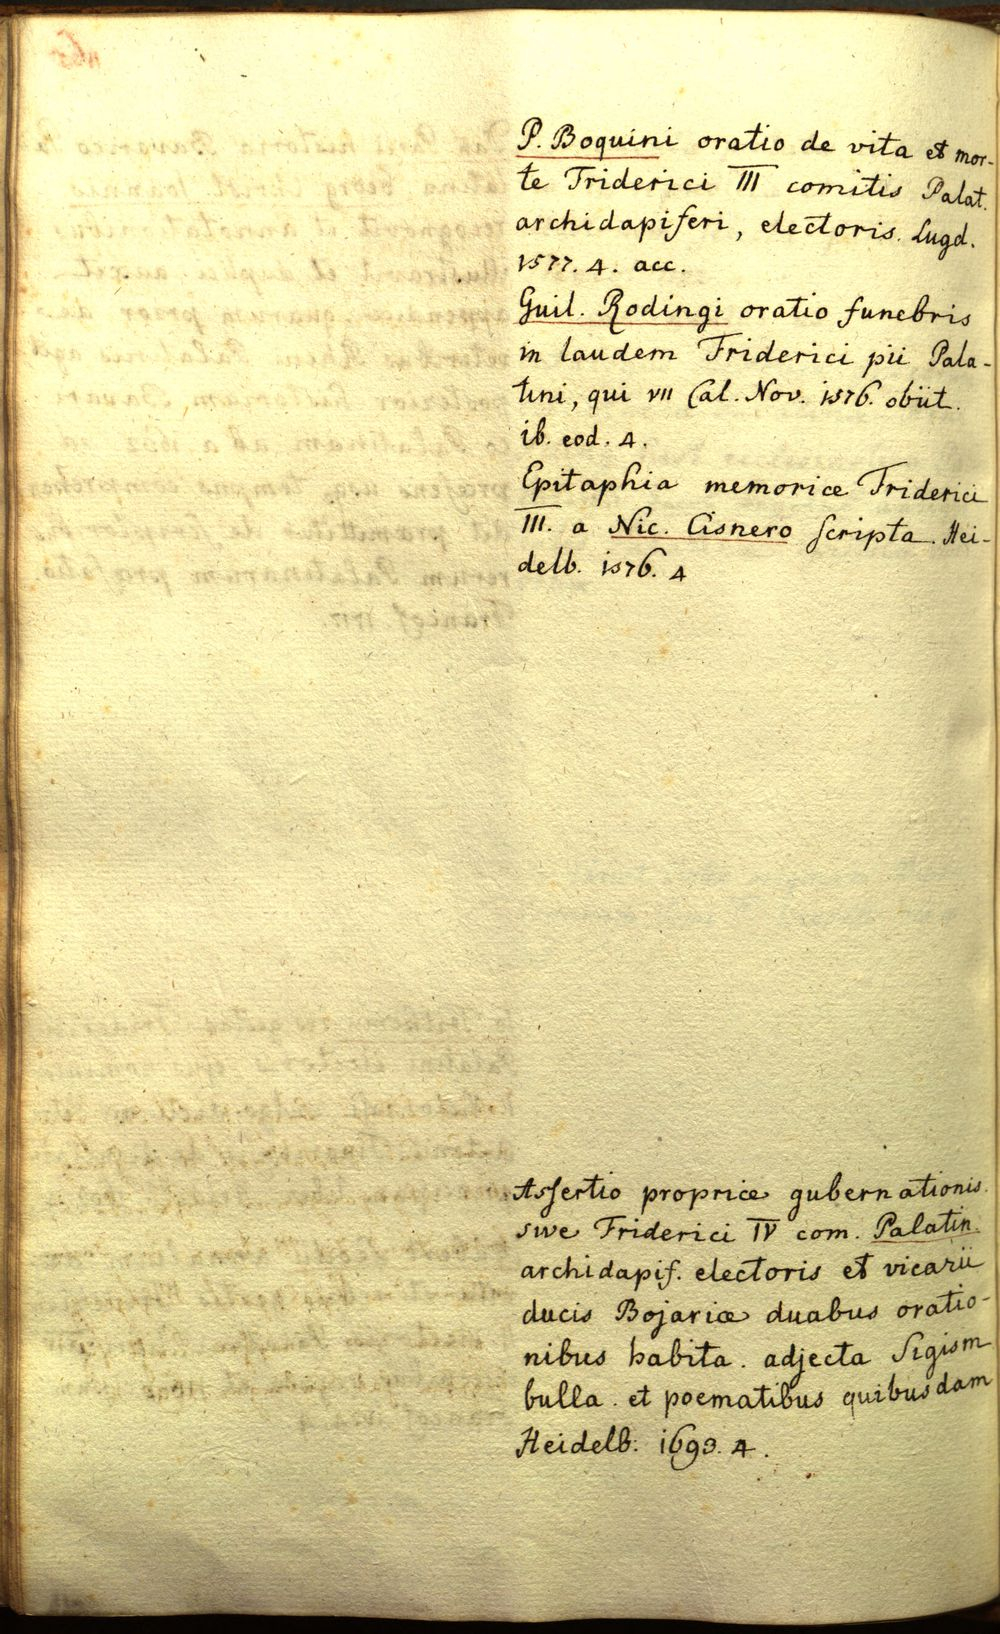 P. Boquini oratio de vita et mor-
te Friderici III comitis Palat.
archidapiferi, electoris. Lugd.
1577. 4. acc.
Guil. Rodingi oratio funebris
in laudem Friderici pii Pala-
tini, qui VII Cal. Nov. 1576. obiit.
ib. eod. 4.
Epitaphia memoriæ Friderici
III. a Nic. Cisnero scripta. Hei-
delb. 1576. 4
Assertio propriæ gubernationis
sive Friderici IV com. Palatin.
archidapif. electoris et vicarii
ducis Bojariæ duabus oratio-
nibus habita. adjecta Sigism
bulla. et poematibus quibusdam
Heidelb. 1693. 4.